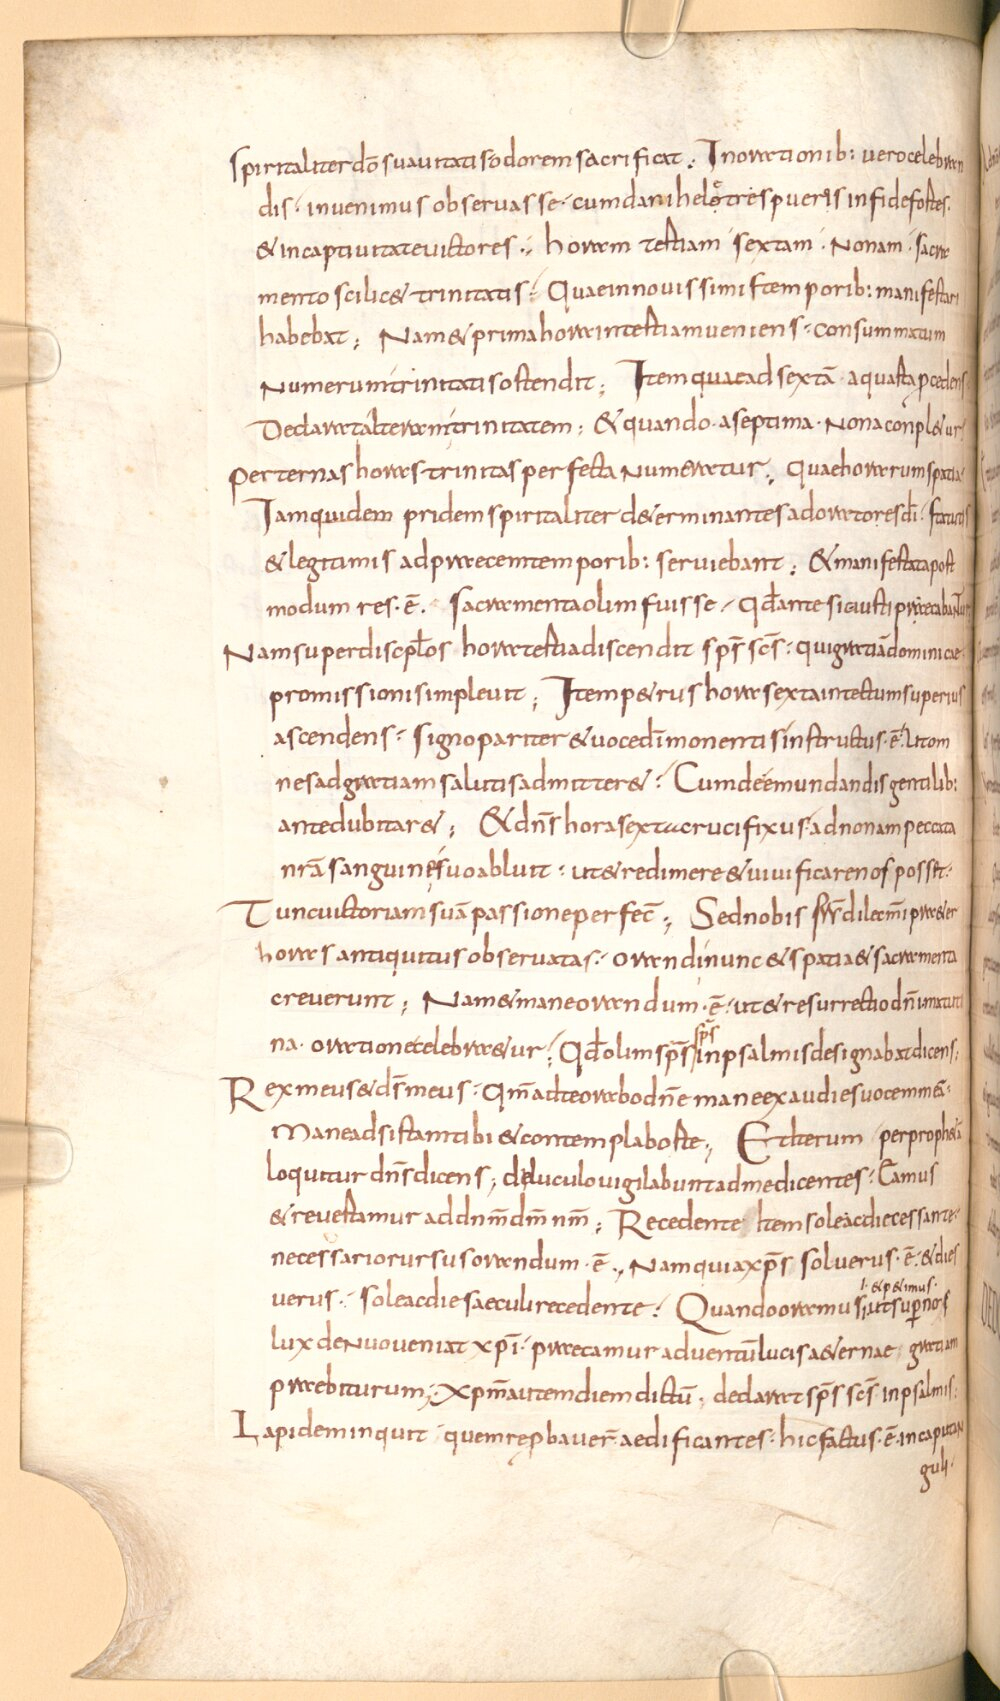 spiritaliter dõ suavitatis odorem sacrificat; In orationib: vero celebran
dis· invenimus observasse· cum danihelẽ tres pueros in fide fortes·
& in captivitate victores·; horam tertiam· sextam· Nonam· sacra
mento scilic& trinitatis· Quae in novissimis temporib: manifestari
habebat; Nam & prima hora in tertiam veniens· consummatum
Numerum trinitatis ostendit; Item quae ad sextã· a quarta pcedens
Declarat alteram trinitatem; & quando· a septima· Nona conpl&ur
per ternas horas trinitas perfecta Numeratur; Quae horarum spatia
Iamquidem pridem spiritaliter d&erminantes adoratores dī· statutis
& legitimis ad praecem temporib: serviebant; & manifestata post
modum res· ē· sacramenta olim fuisse· Qđ ante sic iusti praecabantur
Nam super discplos hora tertia discendit sps̄ scs̄· qui gratiā dominicae
promissionis implevit; Item p&rus hora sexta in tectum superius
ascendens· signo pariter & voce dī monentis instructus· ē· ut om
nes ad gratiam salutis admitter&· Cum de emundandis gentilib:
ante dubitar&; & dn̄s hora sexta crucifixus· ad nonam peccata
nr̄a sanguine suo abluit· ut & redimere & vivificare nos poss&·
Tunc victoriam suā passione perfec̄; Sed nobis fr̄s dilectm̄i pra&er
horas antiquitus observatas· orandi nunc & spatia & sacramenta
creverunt; Nam & mane orandum· ē· ut & resurrectio dn̄i matuti
na· oratione celebra&ur; Qđ olim sps̄ sps̄ in psalmis designabat dicens;
Rex meus & ds̄ meus· Qm̄ ad te orabo dn̄e mane exaudies vocem meā·
Mane adsistam tibi & contemplabor te; Et iterum per proph&ā
loquitur dn̄s dicens; diluculo vigilabunt ad me dicentes· Eamus
& revertamur ad dnm̄ dm̄ nm̄; Recedente Item sole ac die cessante·
necessario rursus orandum· ē·; Nam quia xps̄ sol verus· ē· & dies
verus· sole ac die saeculi recedente· Quando oramus l· & p&imus· ut super nos
lux de Nuo veniat xpī· praecamur adventū lucis a&ernae gratiam
praebiturum; Xpm̄ autem diem dictū; declarat sps̄ scs̄ in psalmis;
Lapidem inquit quem repbaver̄ aedificantes· hic factus· ē· in caput an
guli·